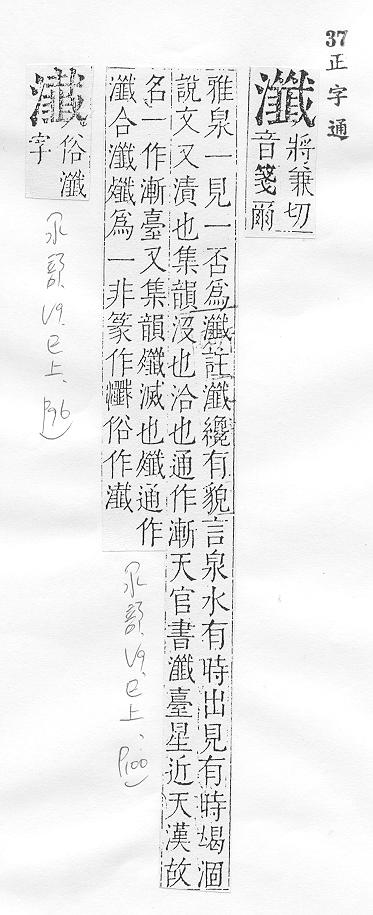 37 正字通
瀸
將兼切
音箋爾
雅泉一見一否爲瀸註瀸纔有貌言泉水有時出見有時竭涸
說文又漬也集韻沒也洽也通作漸天官書瀸臺星近天漢故
名一作漸臺又集韻殲滅也殲通作
瀸合瀸殲爲一非篆作 俗作瀐
水部, V9, 巳上, P100
瀐
俗瀸
字
水部, V9, 巳上, P96